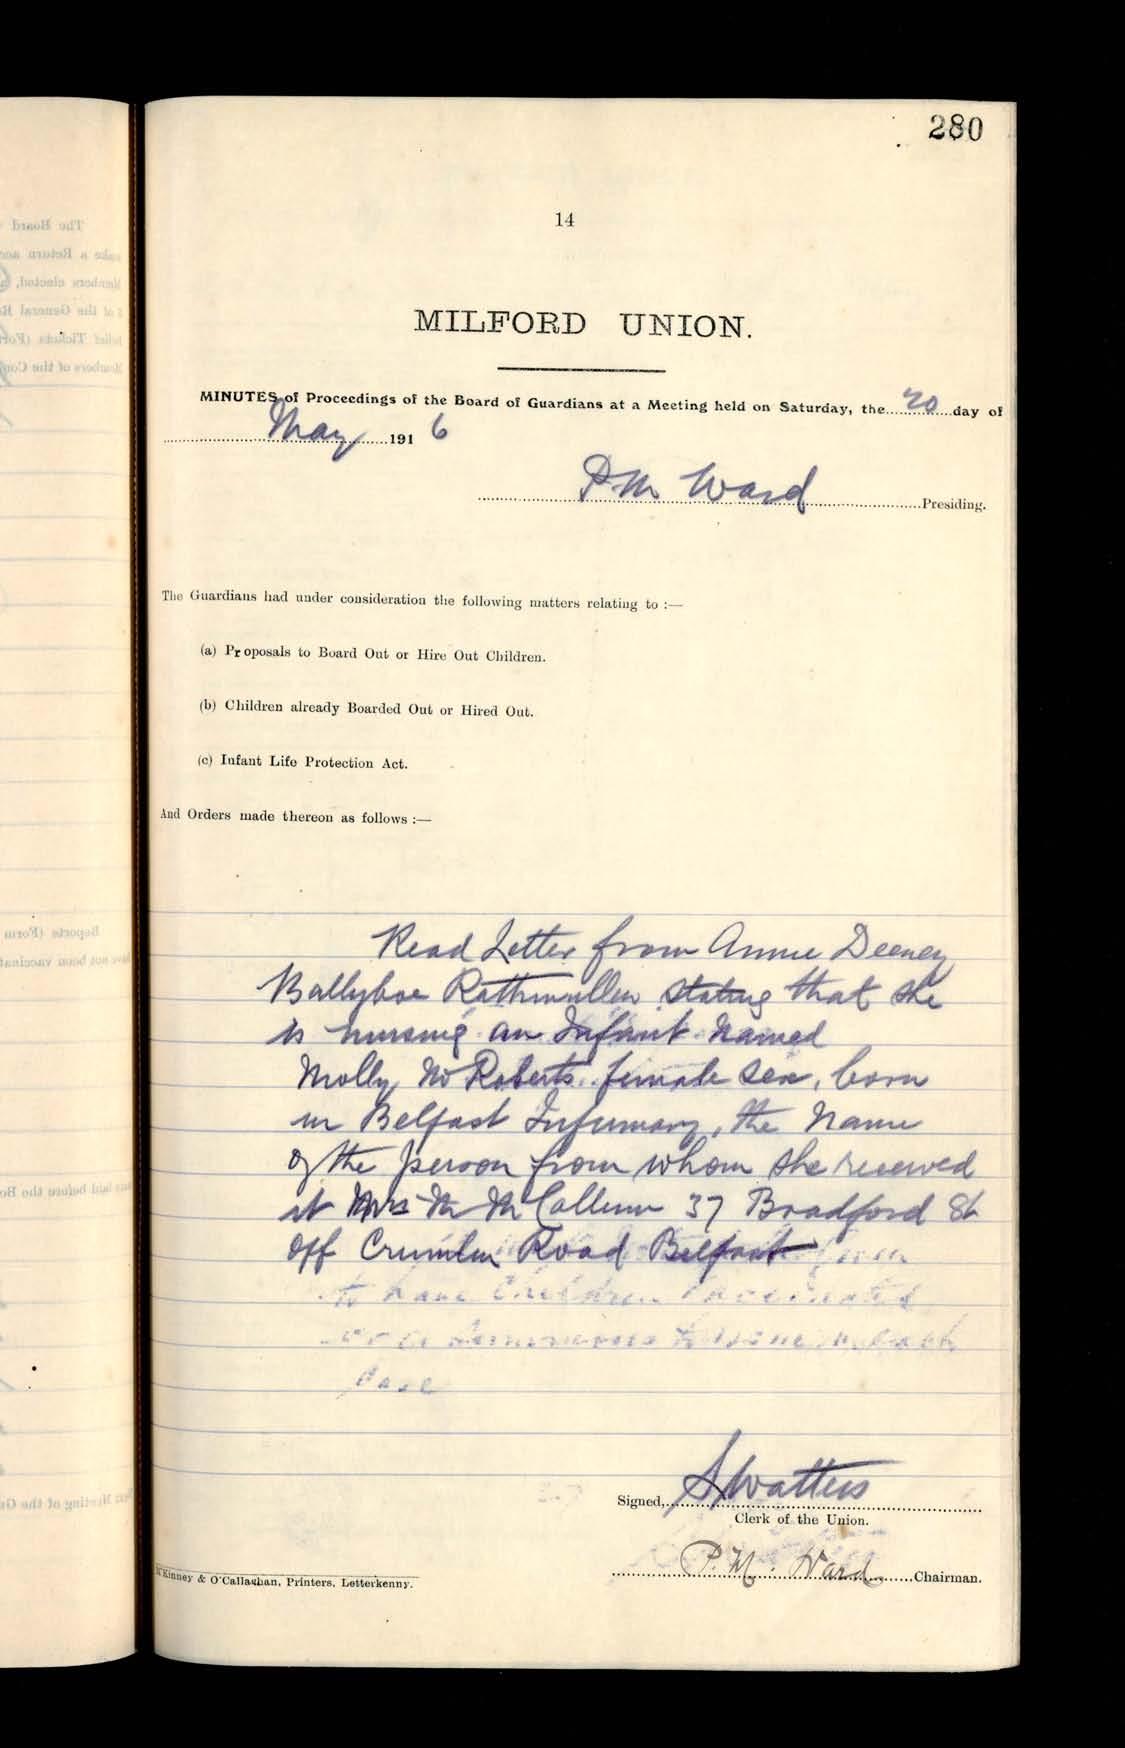 280
14
MILFORD UNION.
MINUTES of Proceedings of the Board of Guardians at a Meeting held on Saturday, the 20 day of
May 1916
P M Ward Presiding.
The Guardians had under consideration the following matters relating to :—
(a) Proposals to Board Out or Hire Out Children.
(b) Children already Boarded Out or Hired Out.
(c) Infant Life Protection Act.
And Orders made thereon as follows :—
Read Letter from Annie Deeney
Ballyboe Rathmullen stating that she
is nursing an Infant named
Molly Mc Roberts female sex, born
in Belfast Infirmary, the name
of the person from whom she received
it Mrs M McCallum 37 Bradford St
off Crumlin Road Belfast
to have Children
case
Signed, S Watters
Clerk of the Union.
P. M. Ward Chairman.
McKinney & O'Callaghan, Printers, Letterkenny.
The Board
make a Return
Members elected,
of the General
Relief Tickets (For
Members of the
Reports) (Form
have not been
laid before the Bo
Meeting of the Gu